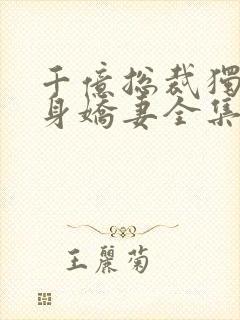 千億總裁獨
身嬌妻全集
王麗菊